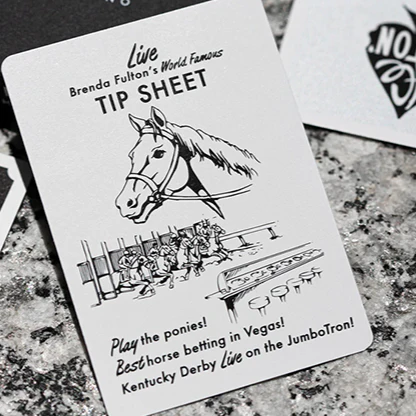 Live
Brenda Fulton's World Famous
TIP SHEET
Play the ponies!
Best horse betting in Vegas!
Kentucky Derby Live on the JumboTron!
NO